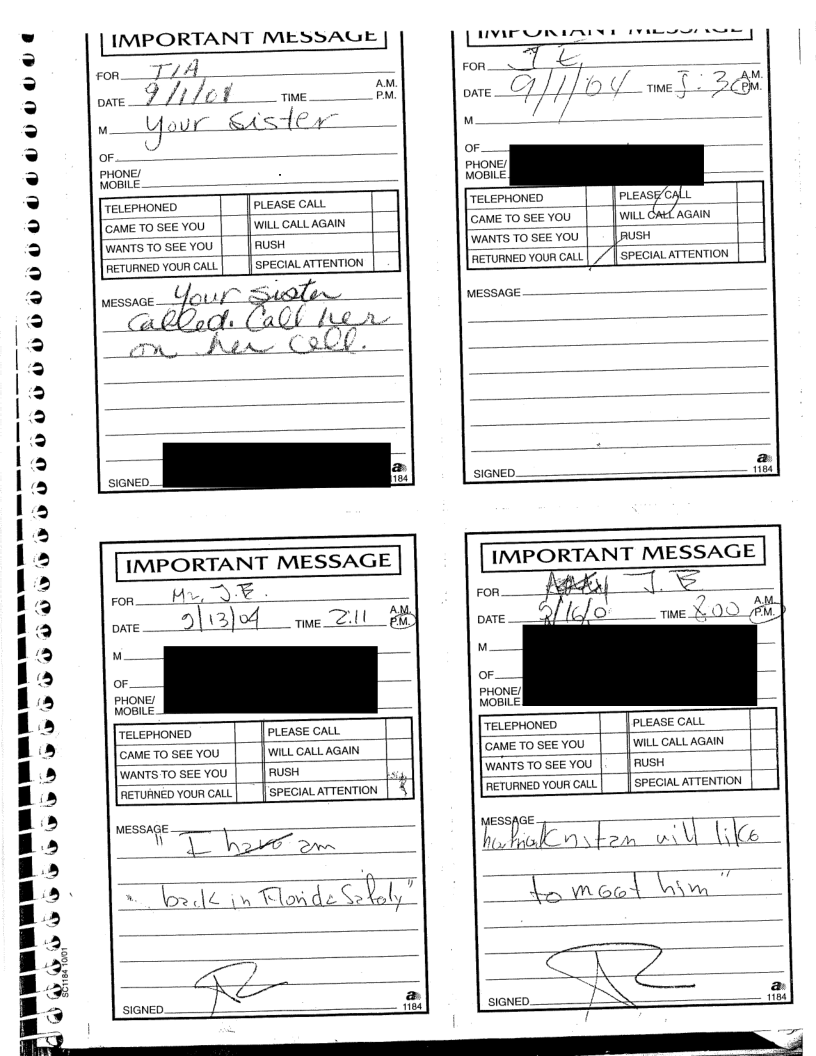 IMPORTANT MESSAGE
FOR TIA
DATE 9/1/01 TIME A.M. P.M.
M Your sister
OF
PHONE/
MOBILE
TELEPHONED PLEASE CALL
CAME TO SEE YOU WILL CALL AGAIN
WANTS TO SEE YOU RUSH
RETURNED YOUR CALL SPECIAL ATTENTION
MESSAGE Your Sister
called. Call her
on her cell.
SIGNED
a 1184
IMPORTANT MESSAGE
FOR J E.
DATE 9/1/04 TIME 5:30 A.M. P.M.
M
OF
PHONE/
MOBILE
TELEPHONED PLEASE CALL
CAME TO SEE YOU WILL CALL AGAIN
WANTS TO SEE YOU RUSH
RETURNED YOUR CALL SPECIAL ATTENTION
MESSAGE
SIGNED
a 1184
IMPORTANT MESSAGE
FOR Mr. J.E.
DATE 9/13/04 TIME 2:11 A.M. P.M.
M
OF
PHONE/
MOBILE
TELEPHONED PLEASE CALL
CAME TO SEE YOU WILL CALL AGAIN
WANTS TO SEE YOU RUSH
RETURNED YOUR CALL SPECIAL ATTENTION
MESSAGE
" I have am
".. back in Florida Safely"
SIGNED
a 1184
IMPORTANT MESSAGE
FOR J. E
DATE 9/16/0 TIME 8:00 A.M. P.M.
M
OF
PHONE/
MOBILE
TELEPHONED PLEASE CALL
CAME TO SEE YOU WILL CALL AGAIN
WANTS TO SEE YOU RUSH
RETURNED YOUR CALL SPECIAL ATTENTION
MESSAGE
will like
to meet him"
SIGNED
a 1184
SC1184 10/01